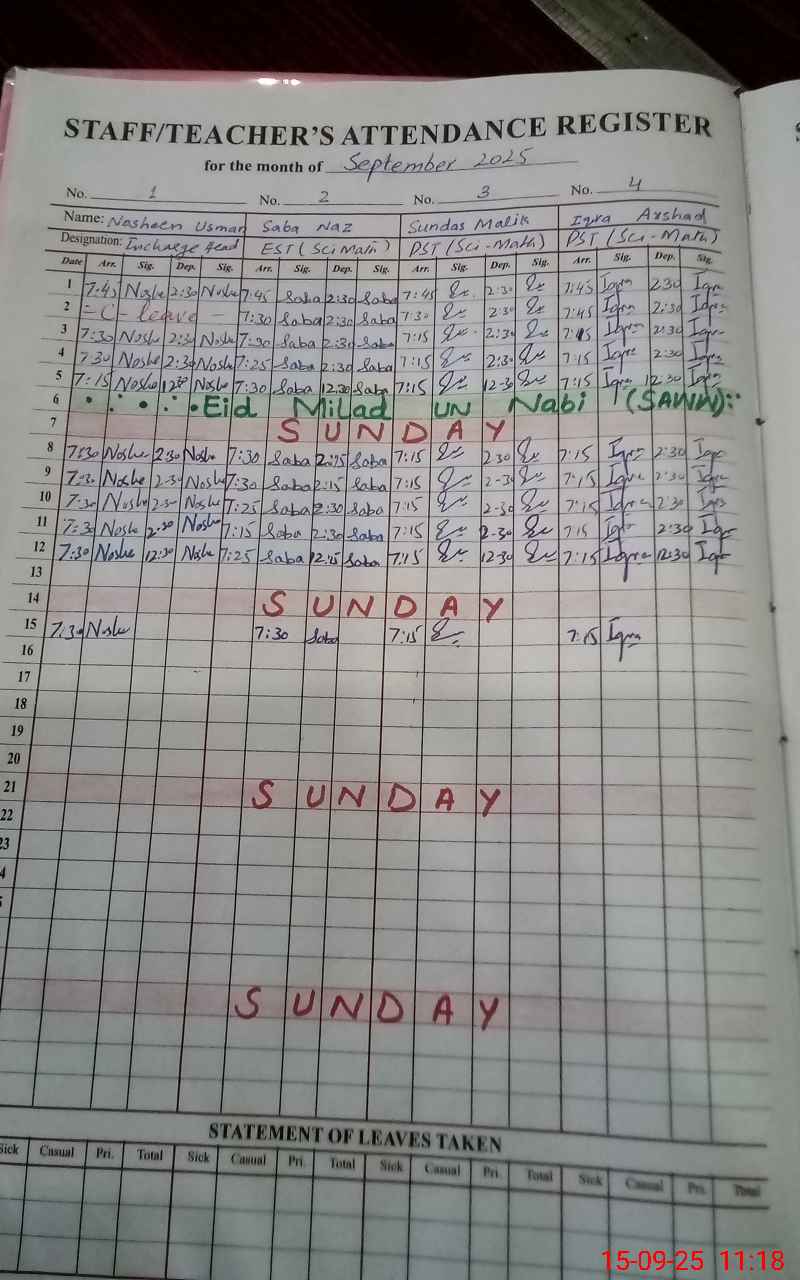 STAFF/TEACHER'S ATTENDANCE REGISTER
for the month of September 2025
No. 1 No. 2 No. 3 No. 4
Name: Nosheen Usman Saba Naz Sundas Malik Iqra Arshad
Designation: Incharge Head EST (Sci Math) PST (Sci-Math) PST (Sci-Math)
Date Arr. Sig. Dep. Sig. Arr. Sig. Dep. Sig. Arr. Sig. Dep. Sig. Arr. Sig. Dep. Sig.
1 7:45 Noshe 2:30 Noshe 7:45 Saba 2:30 Saba 7:45 2:30 7:45 Iqra 2:30 Iqra
2 = C- leave - 7:30 Saba 2:30 Saba 7:30 2:30 7:45 Iqra 2:30 Iqra
3 7:30 Noshe 2:30 Noshe 7:30 Saba 2:30 Saba 7:15 2:30 7:15 Iqra 2:30 Iqra
4 7:30 Noshe 2:30 Noshe 7:25 Saba 2:30 Saba 7:15 2:30 7:15 Iqra 2:30 Iqra
5 7:15 Noshe 12:30 Noshe 7:30 Saba 12:30 Saba 7:15 12-30 7:15 Iqra 12:30 Iqra
6 Eid Milad UN Nabi (SAWW)
7 SUNDAY
8 7:30 Noshe 2:30 Noshe 7:30 Saba 2:15 Saba 7:15 2:30 7:15 Iqra 2:30 Iqra
9 7:30 Noshe 2:30 Noshe 7:30 Saba 2:15 Saba 7:15 2-30 7:15 Iqra 2:30 Iqra
10 7:30 Noshe 2:30 Noshe 7:25 Saba 2:30 Saba 7:15 2-30 7:15 Iqra 2:30 Iqra
11 7:30 Noshe 2:30 Noshe 7:15 Saba 2:30 Saba 7:15 2-30 7:15 Iqra 2:30 Iqra
12 7:30 Noshe 12:30 Noshe 7:25 Saba 12:15 Saba 7:15 12:30 7:15 Iqra 12:30 Iqra
13
14 SUNDAY
15 7:30 Noshe 7:30 Saba 7:15 7:15 Iqra
16
17
18
19
20
21 SUNDAY
22
23
SUNDAY
STATEMENT OF LEAVES TAKEN
Sick Casual Pri. Total Sick Casual Pri. Total Sick Casual Pri. Total Sick Casual Pri. Total
15-09-25 11:18